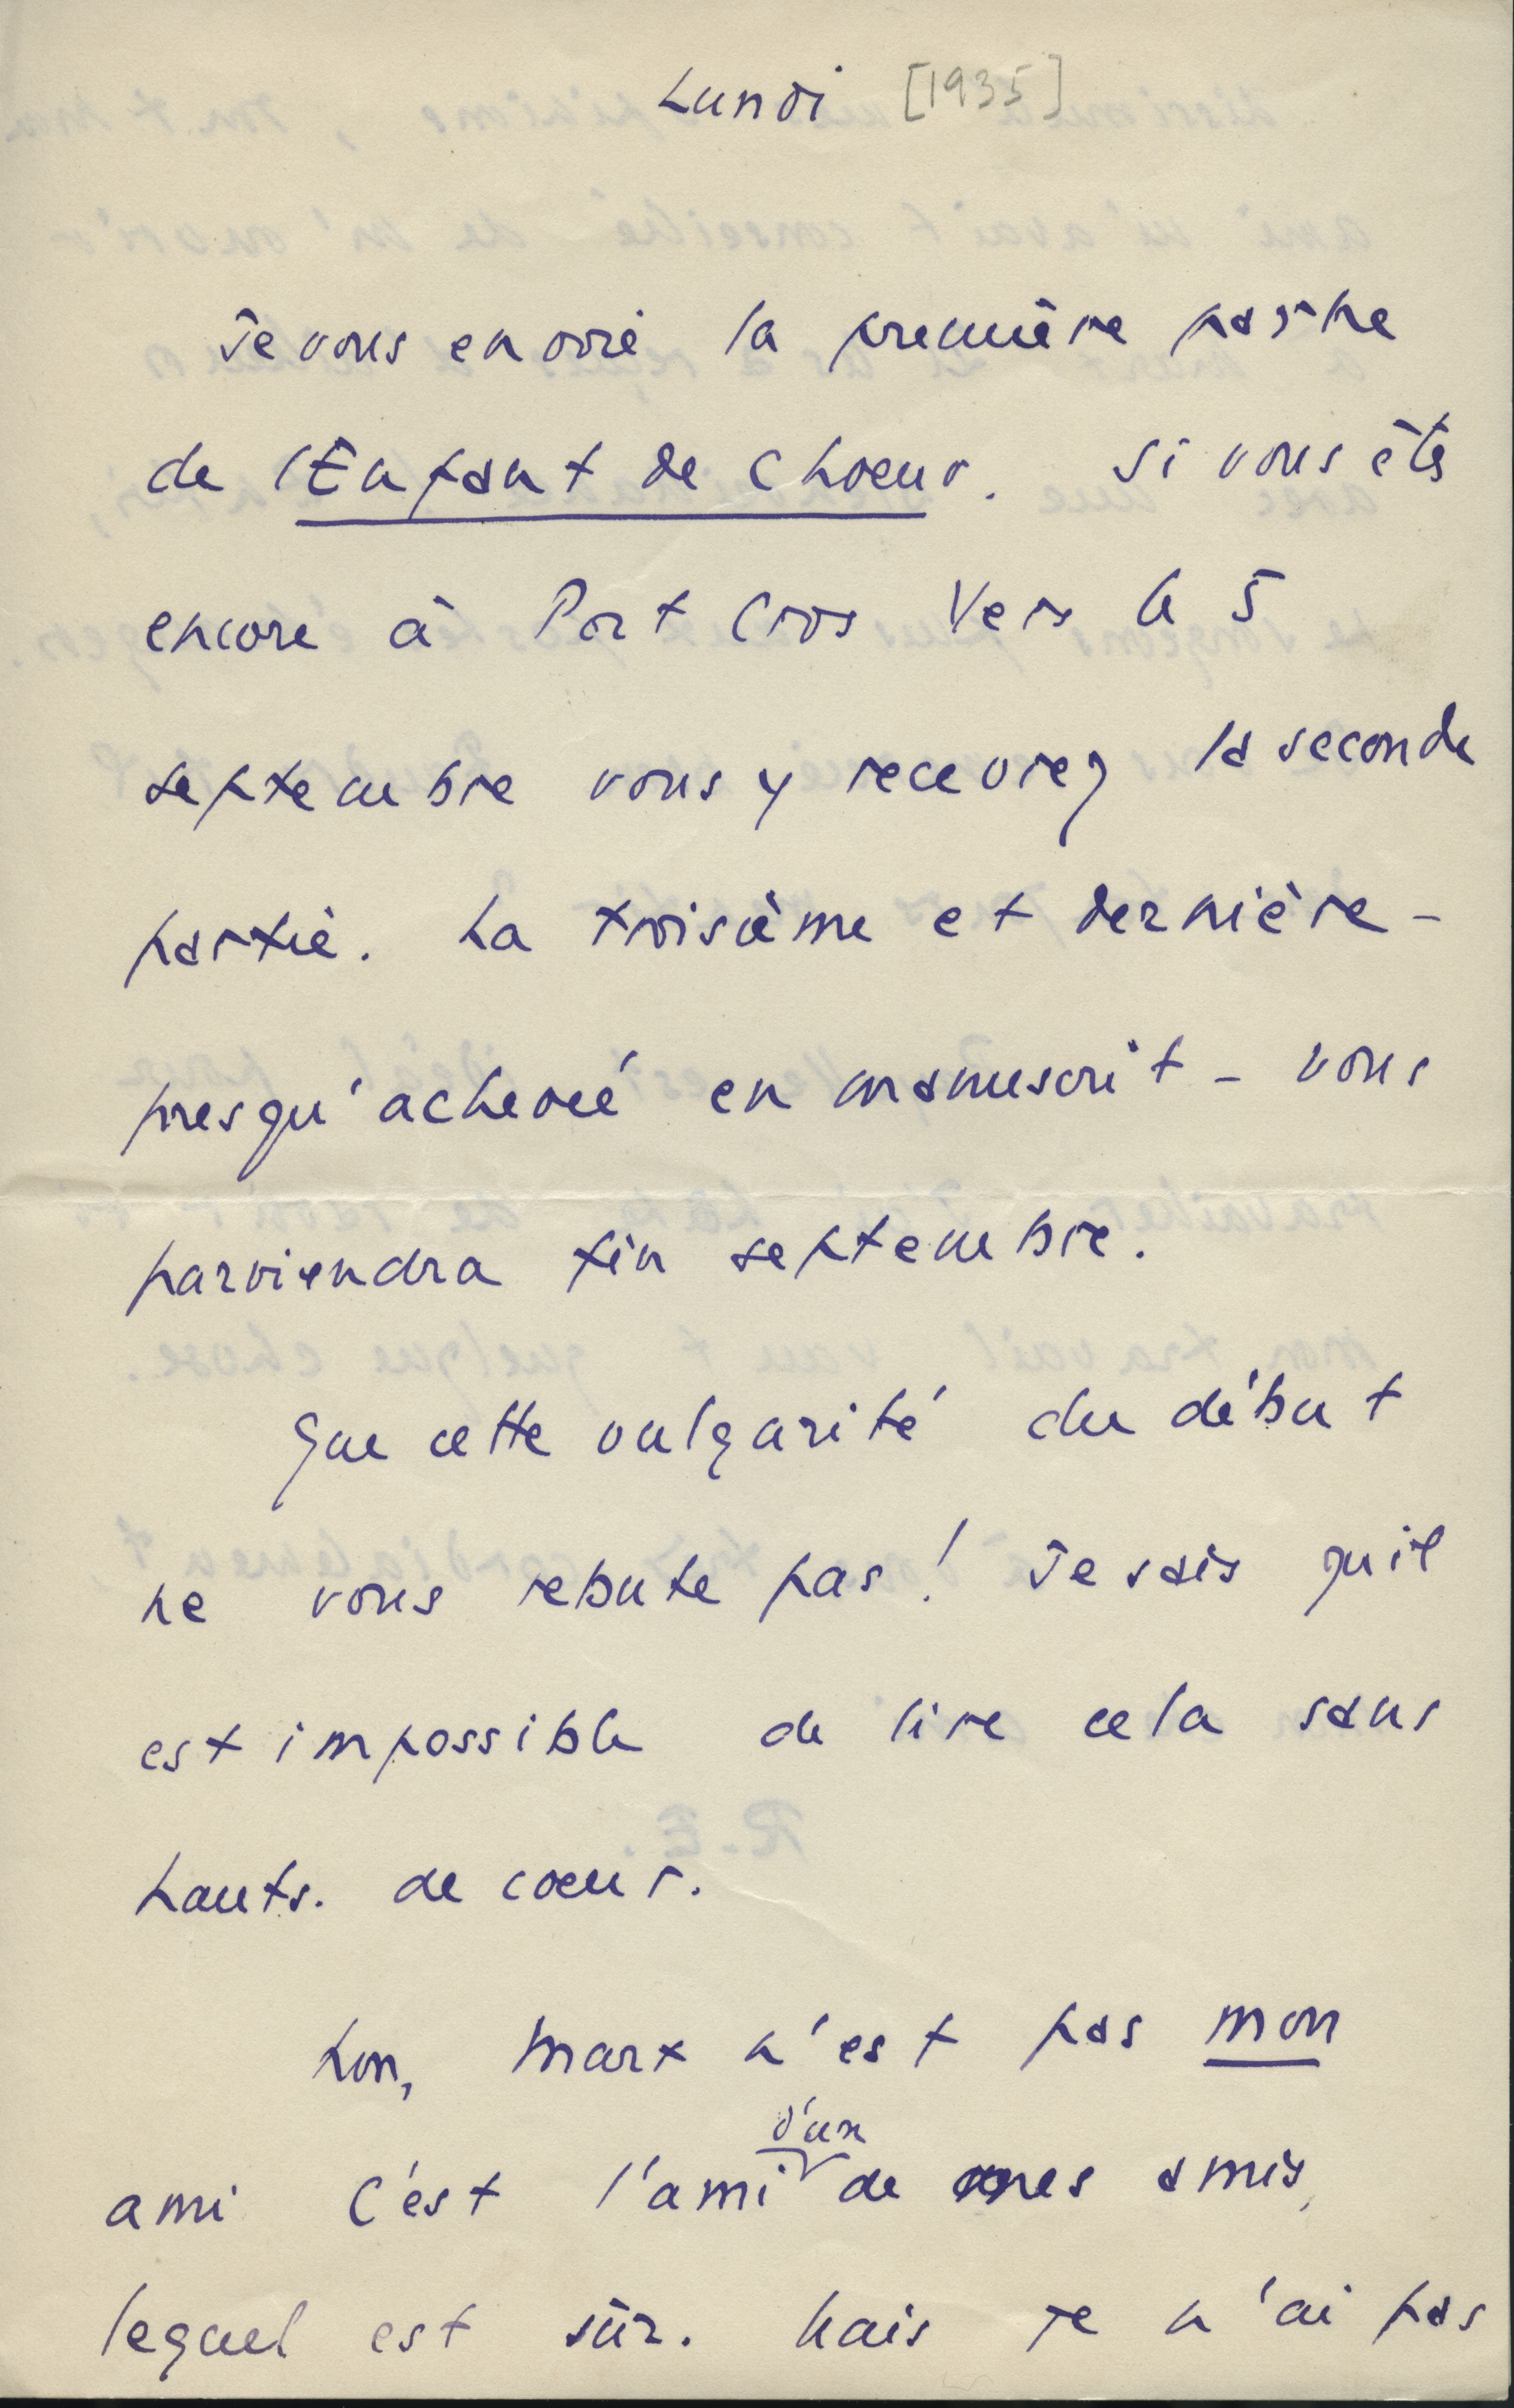 Lundi [1935]
Je vous envoie la première partie
de l'Enfant de Choeur. Si vous êtes
encore à Port Cros vers le 5
septembre vous y recevrez la seconde
partie. La troisième et dernière -
presqu'achevée en manuscrit - vous
parviendra fin septembre.
Que cette vulgarité du début
ne vous rebute pas ! Je sais qu'il
est impossible de lire cela sans
hauts. de coeur.
Non, Marx n'est pas mon
d'un
ami C'est l'ami de mes amis,
lequel est sûr. Mais je n'ai pas